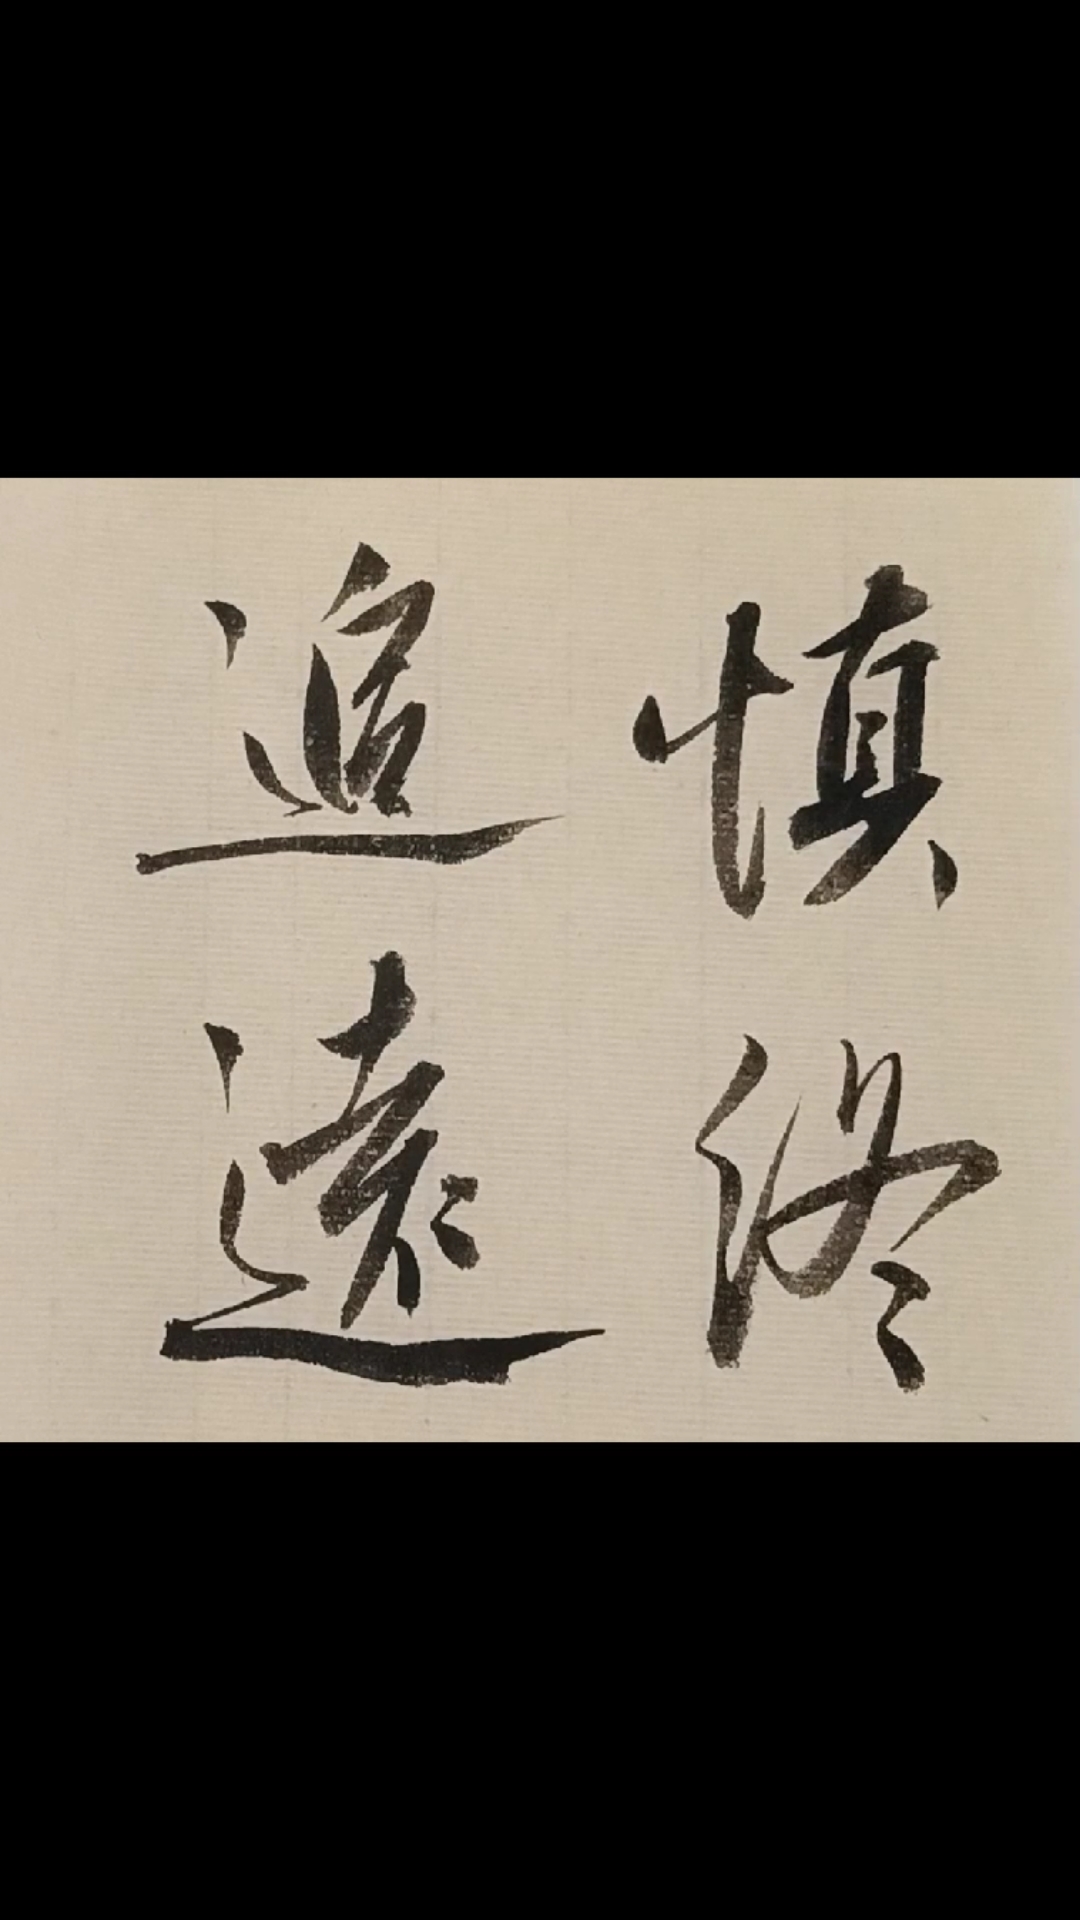 慎終
追遠